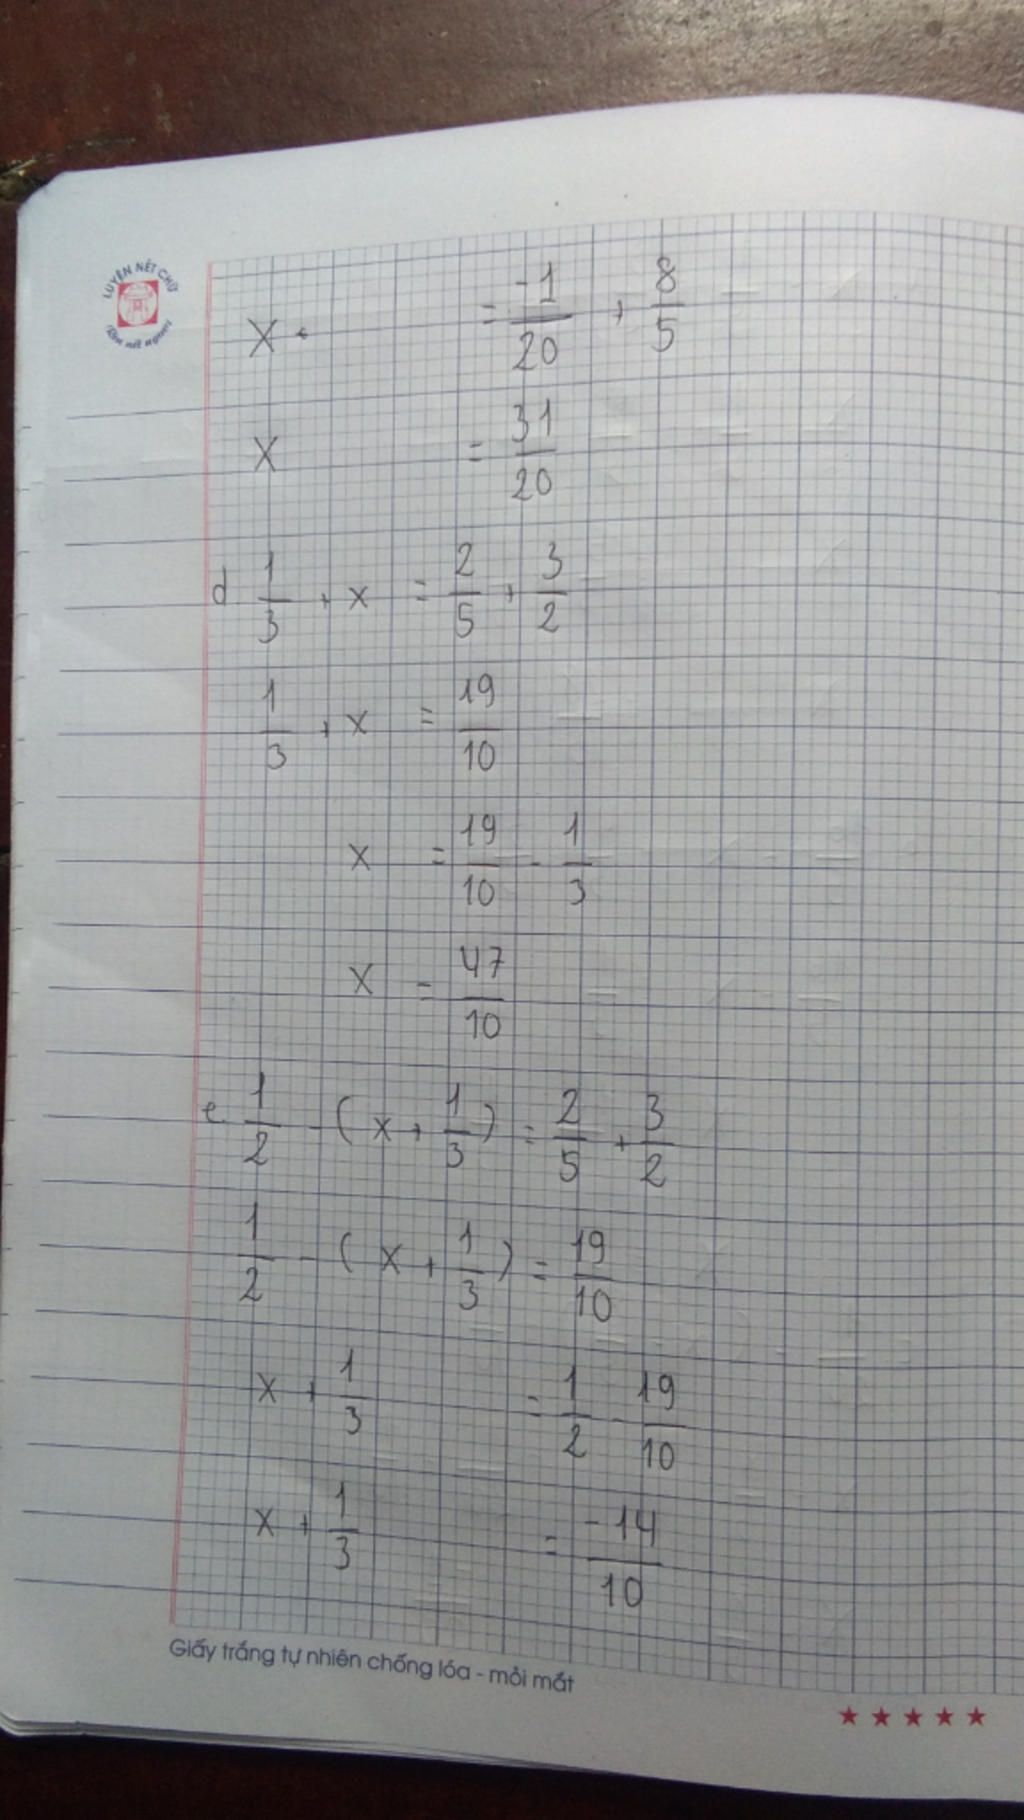 LUYỆN NÉT CHỮ
Rèn nết người
x = -1/20 + 8/5
x = 31/20
d 1/3 + x = 2/5 + 3/2
1/3 + x = 19/10
x = 19/10 - 1/3
x = 47/10
e 1/2 - ( x + 1/3 ) = 2/5 + 3/2
1/2 - ( x + 1/3 ) = 19/10
x + 1/3 = 1/2 - 19/10
x + 1/3 = -14/10
Giấy trắng tự nhiên chống lóa - mỏi mắt